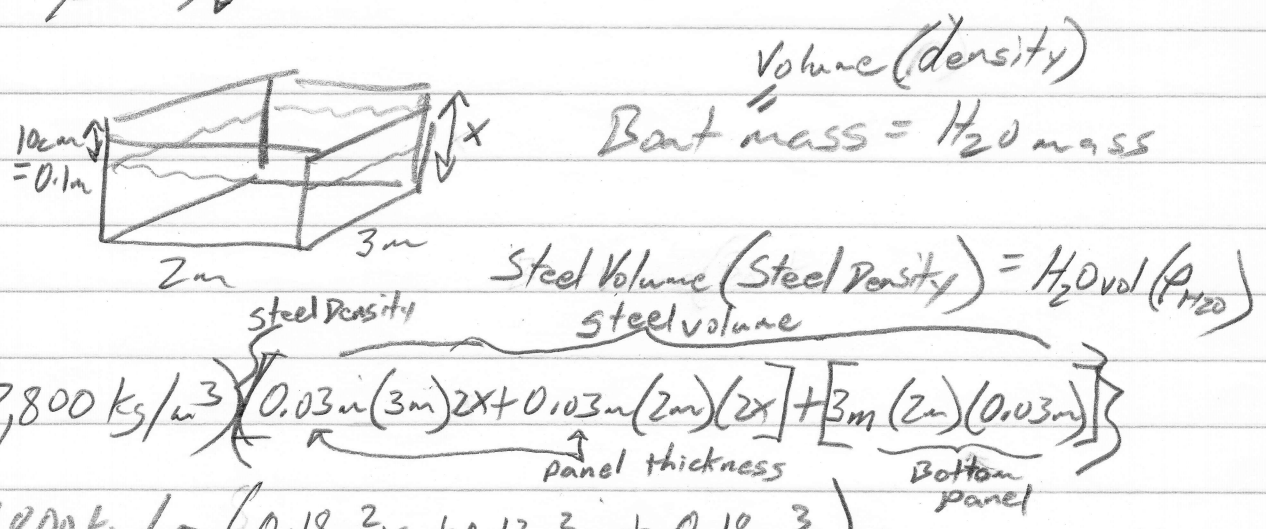 Volume (density)
Boat mass = H₂O mass
10cm
= 0.1m
x
3m
2m
Steel Volume (Steel Density) = H₂O vol (ρH₂O)
steel Density
steel volume
,800 kg/m³) {[0.03m(3m)2x + 0.03m(2m)(2x] + [3m (2m)(0.03m)]}
panel thickness
Bottom
panel